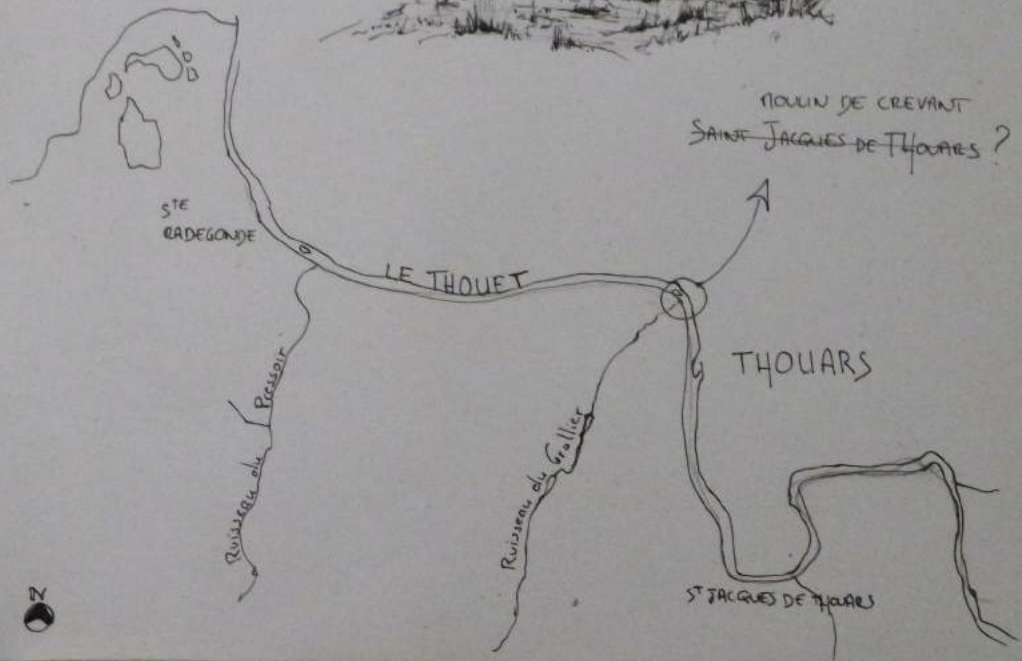 MOULIN DE CREVANT
SAINT JACQUES DE THOUARS ?
STE
RADEGONDE
LE THOUET
THOUARS
Ruisseau du Pressoir
Ruisseau du Grollier
ST JACQUES DE THOUARS
N